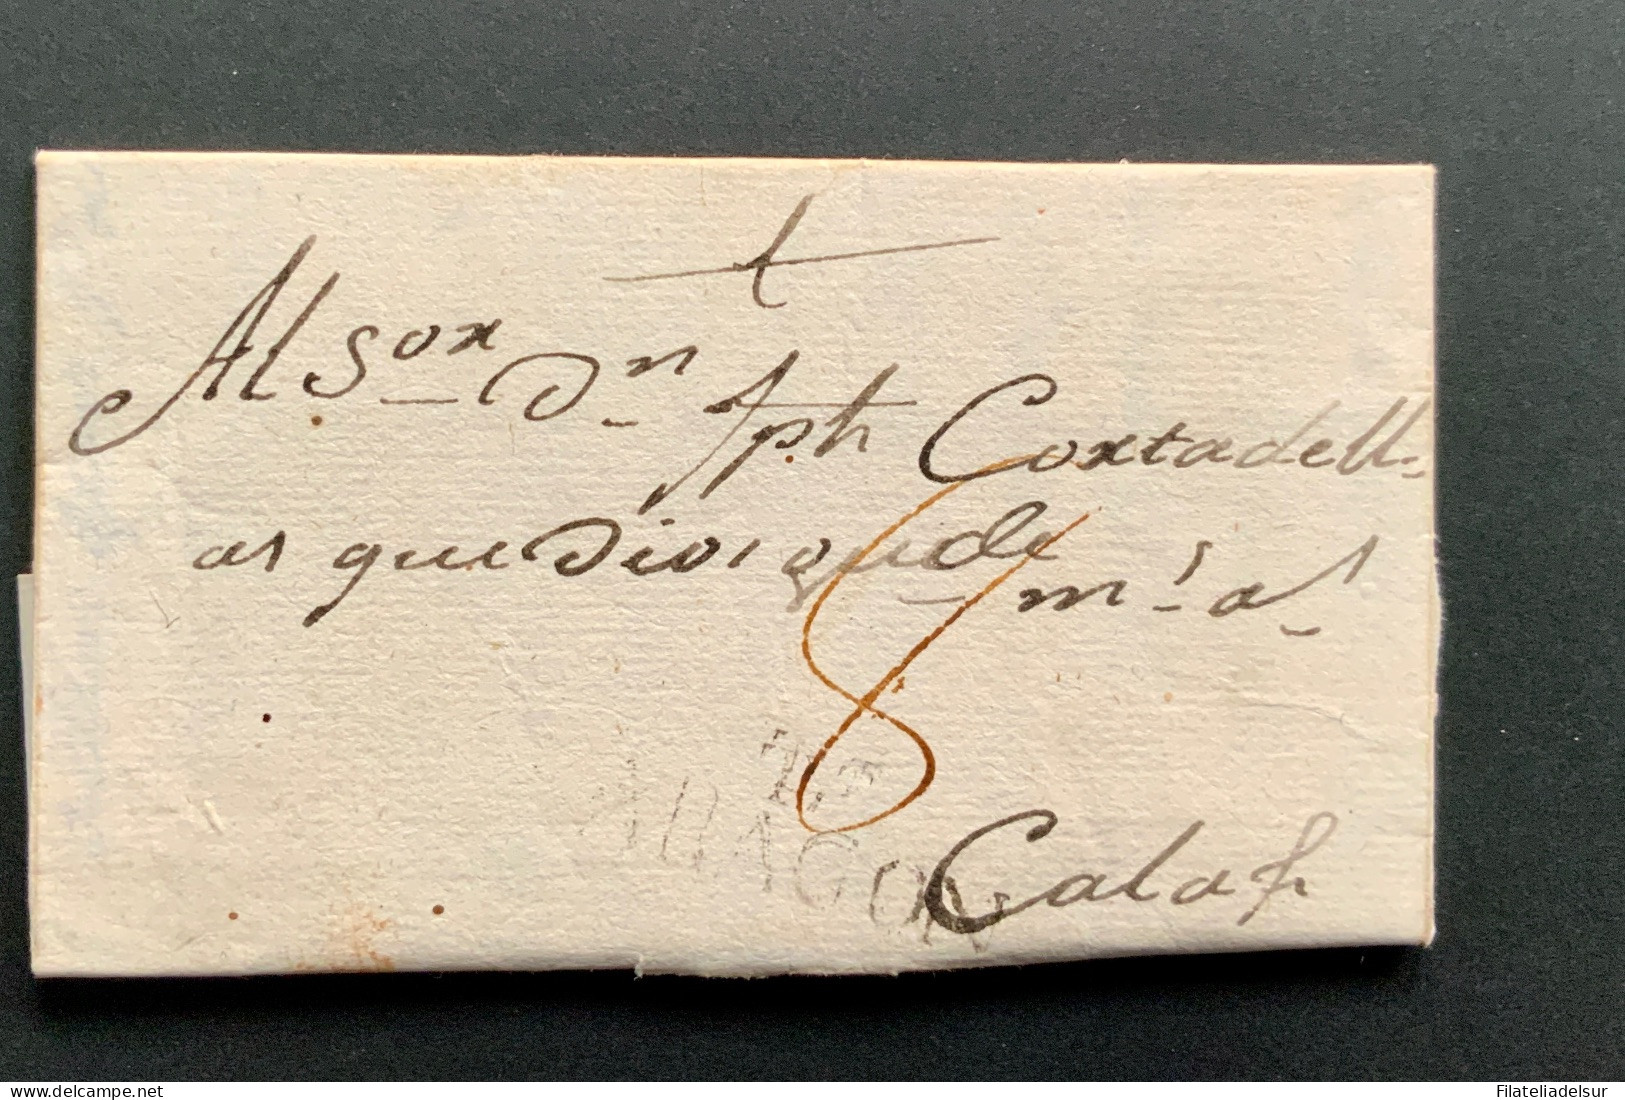 Al Sor Dn Jph Cortadell
a qn Dios gude ms as
8
ARAGON
Calaf
©delcampe.net
Filateliadelsur